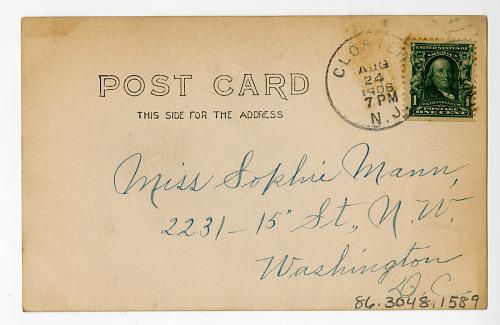 POST CARD
THIS SIDE FOR THE ADDRESS
CLOSTER
AUG
24
1906
7 PM
N.J.
UNITED STATES OF AMERICA
1 1
POSTAGE
ONE CENT
Miss Sophie Mann,
2231-15" St., N.W.
Washington
D.C.
86.3048.1589